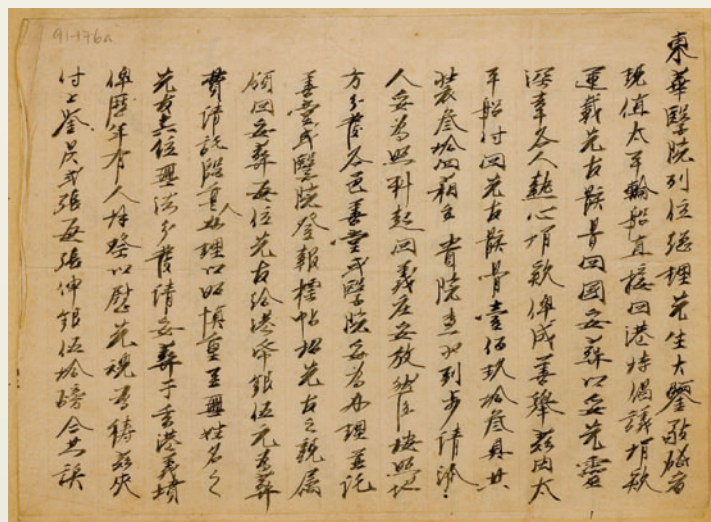 東華醫院列位總理先生大鑒敬啟者
現值太平輪船直接回港特倡議捐欵
運載先友骸骨回國安葬以安先靈
深幸各人熱心捐欵俾成善舉茲由太
平船付回先友骸骨壹佰玖拾叁具共
裝叁拾四箱至貴院查收到步請派
人妥為照料起回義庄安放然後按照地
方分發各邑善堂或醫院妥為办理並託
善堂或醫院登報標帖招先友之親属
領回安葬每位先友給港幣銀伍元為葬
費請託殷重人办理以昭慎重至無姓名之
先友六位無從分發請安葬于香港義墳
俾歷年有人拜祭以慰先魂普濤茲夾
付上滙呉式張每張伸銀伍拾磅合共誤
91-176a